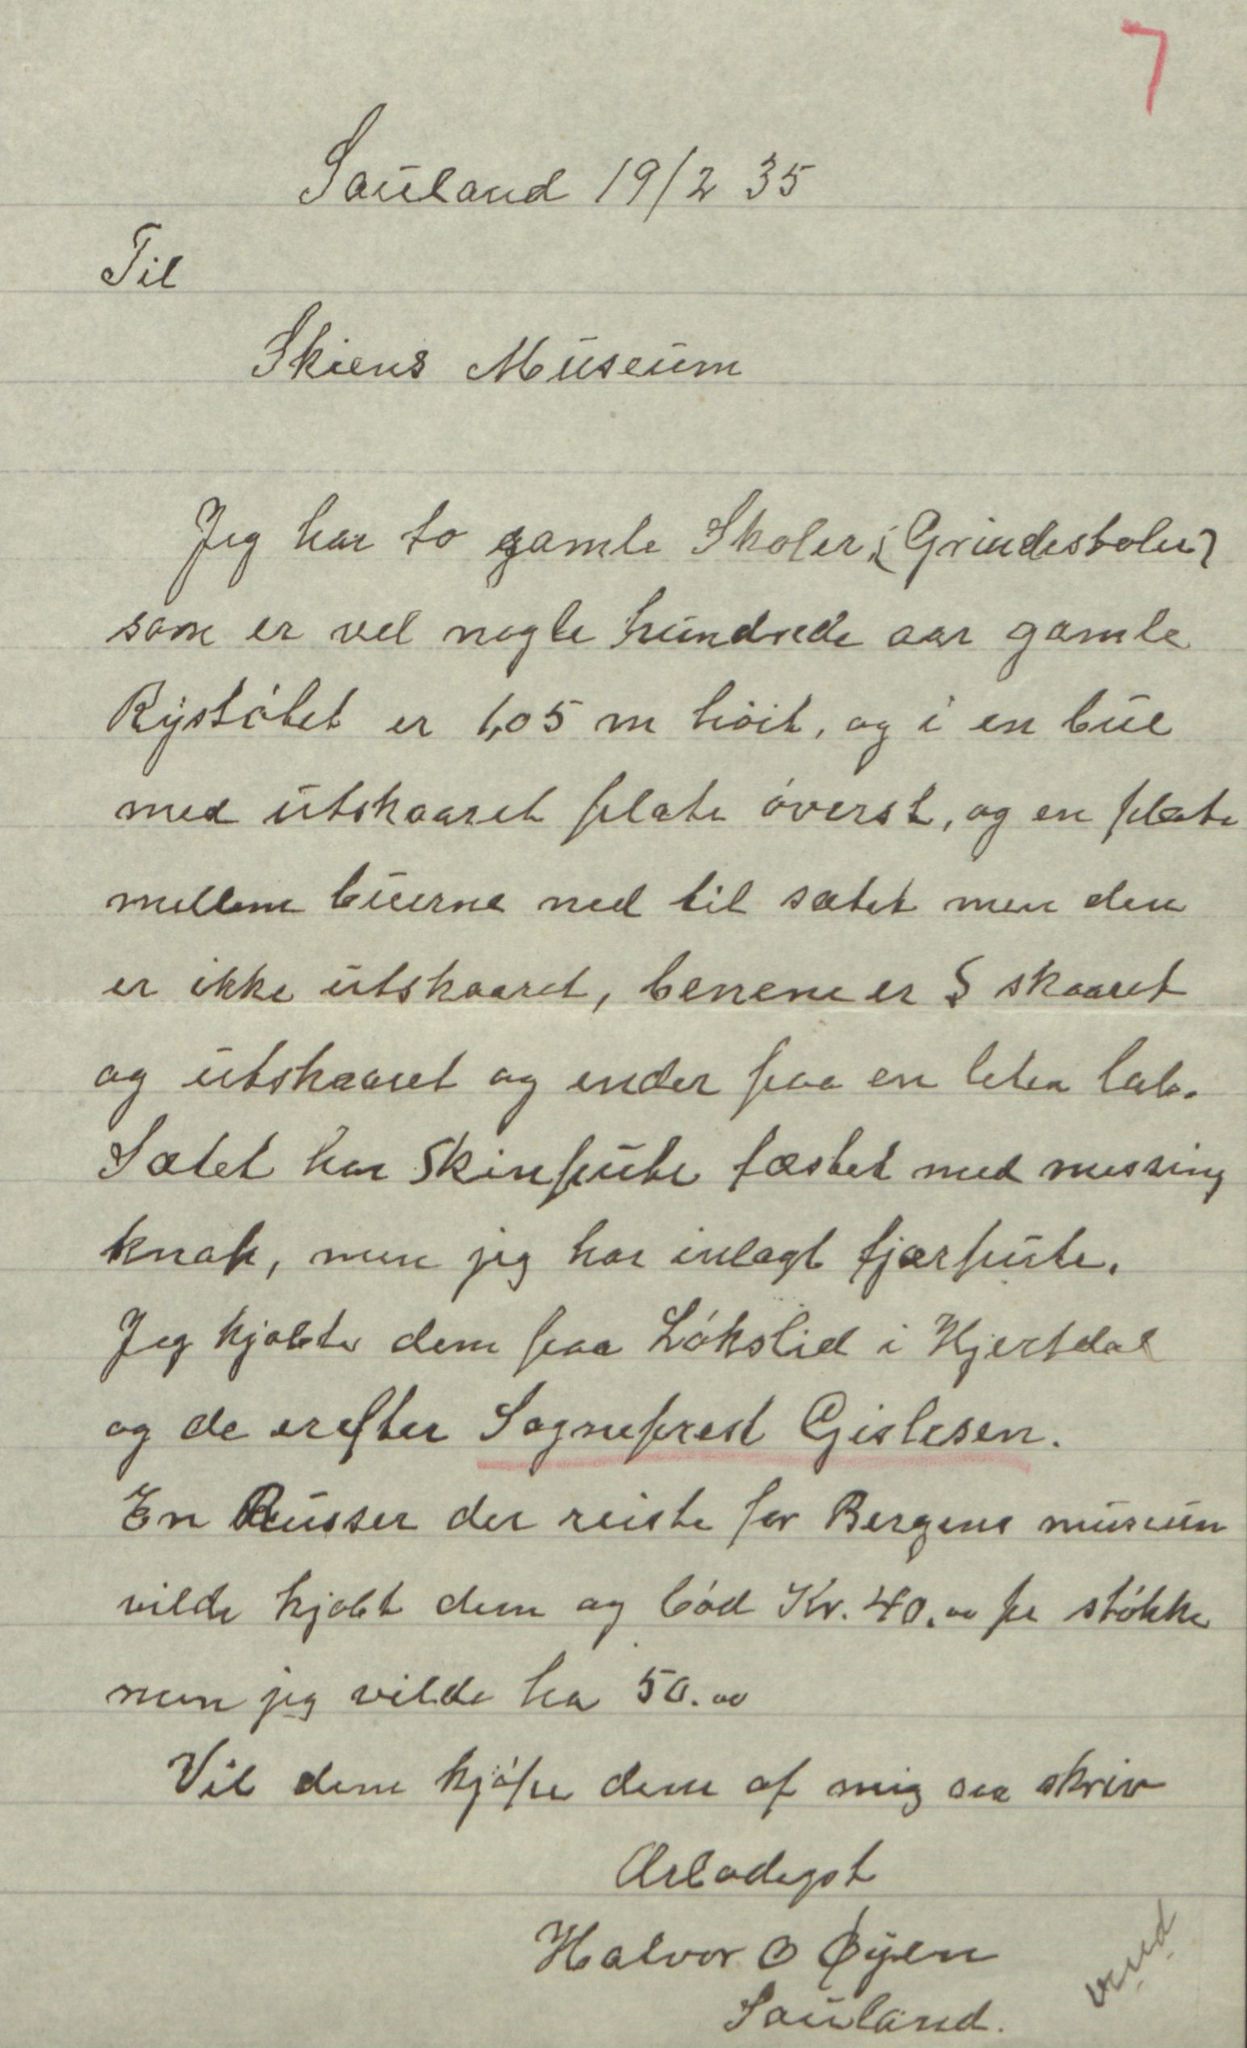 7
Sauland 19/2 35
Til
Skiens Museum
Jeg har to gamle Skoler, (Grindestoler)
som er vel nogle hundrede aar gamle
Rystötet er 1,05 m höit, og i en bue
med utskaaret plate överst, og en plate
mellem buerne ned til sætet men den
er ikke utskaaret, benene er S skaaret
og utskaaret og ender paa en liten lab.
Sætet har Skinpute fæstet med messing
knap, men jeg har inlagt fjærpute.
Jeg kjøbte dem paa Lökslid i Hjertdal
og de er efter Sogneprest Gislesen.
En Russer der reiste for Bergens museum
vilde kjøbt dem og böd Kr. 40.00 pr stökke
men jeg vilde ha 50.00
Vil dem kjöpe dem af mig saa skriv
Ærbødigst
Halvor O Øyen
Sauland.
vend